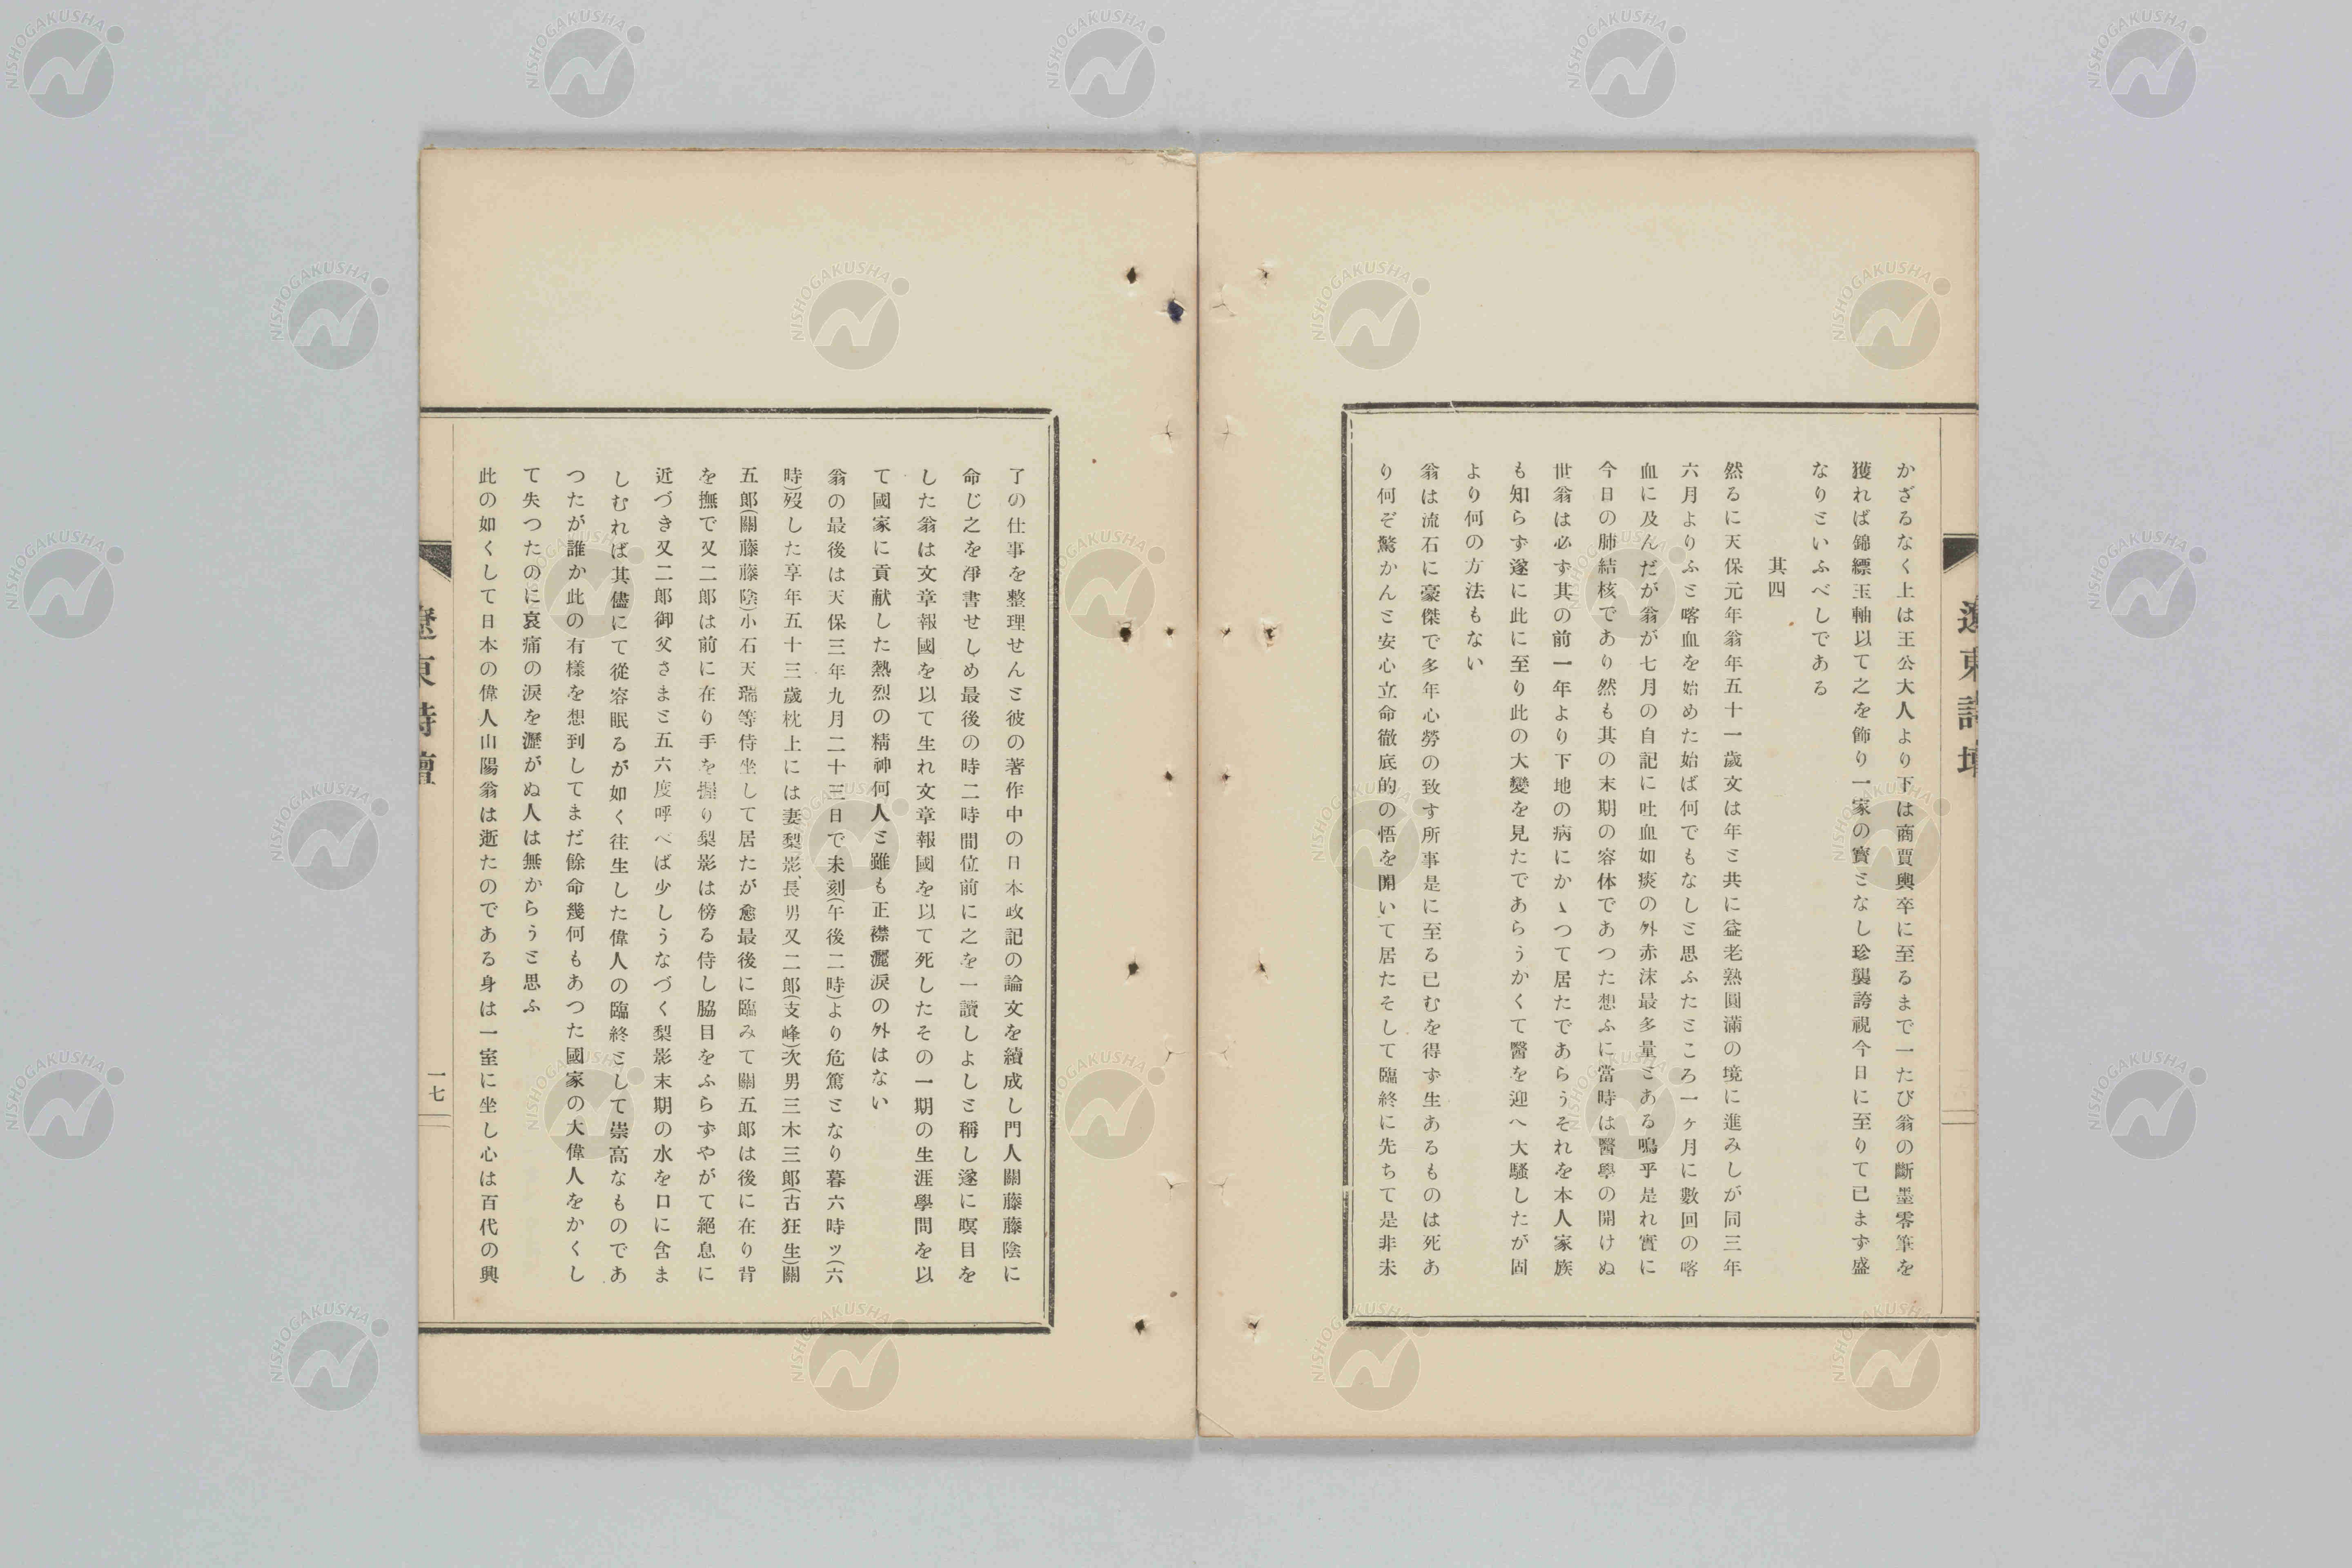 かざるなく上は王公大人より下は商賈輿卒に至るまで一たび翁の斷墨零筆を
獲れば錦縹玉軸以て之を飾り一家の寶となし珍襲誇視今日に至りて已まず盛
なりといふべしである
其四
然るに天保元年翁年五十一歲文は年と共に益老熟圓滿の境に進みしが同三年
六月よりふと喀血を始めた始ば何でもなしと思ふたところ一ヶ月に數回の喀
血に及んだが翁が七月の自記に吐血如痰の外赤沫最多量とある嗚乎是れ實に
今日の肺結核であり然も其の末期の容体であつた想ふに當時は醫學の開けぬ
世翁は必ず其の前一年より下地の病にかゝつて居たであらうそれを本人家族
も知らず遂に此に至り此の大變を見たであらうかくて醫を迎へ大騷したが固
より何の方法もない
翁は流石に豪傑で多年心勞の致す所事是に至る已むを得ず生あるものは死あ
り何ぞ驚かんと安心立命徹底的の悟を開いて居たそして臨終に先ちて是非未
遼東詩壇
了の仕事を整理せんと彼の著作中の日本政記の論文を續成し門人關藤藤陰に
命じ之を淨書せしめ最後の時二時間位前に之を一讀しよしと稱し遂に瞑目を
した翁は文章報國を以て生れ文章報國を以て死したその一期の生涯學問を以
て國家に貢献した熱烈の精神何人と雖も正襟灑淚の外はない
翁の最後は天保三年九月二十三日で未刻(午後二時)より危篤となり暮六時ッ(六
時)歿した享年五十三歲枕上には妻梨影、長男又二郎(支峰)次男三木三郎(古狂生)關
五郎(關藤藤陰)小石天瑞等侍坐して居たが愈最後に臨みて關五郎は後に在り背
を撫で又二郎は前に在り手を握り梨影は傍る侍し脇目をふらずやがて絕息に
近づき又二郎御父さまと五六度呼べば少しうなづく梨影末期の水を口に含ま
しむれば其儘にて從容眠るが如く往生した偉人の臨終として崇高なものであ
つたが誰か此の有樣を想到してまだ餘命幾何もあつた國家の大偉人をかくし
て失つたのに哀痛の淚を瀝がぬ人は無からうと思ふ
此の如くして日本の偉人山陽翁は逝たのである身は一室に坐し心は百代の興
遼東詩壇
一七
NISHOGAKUSHA